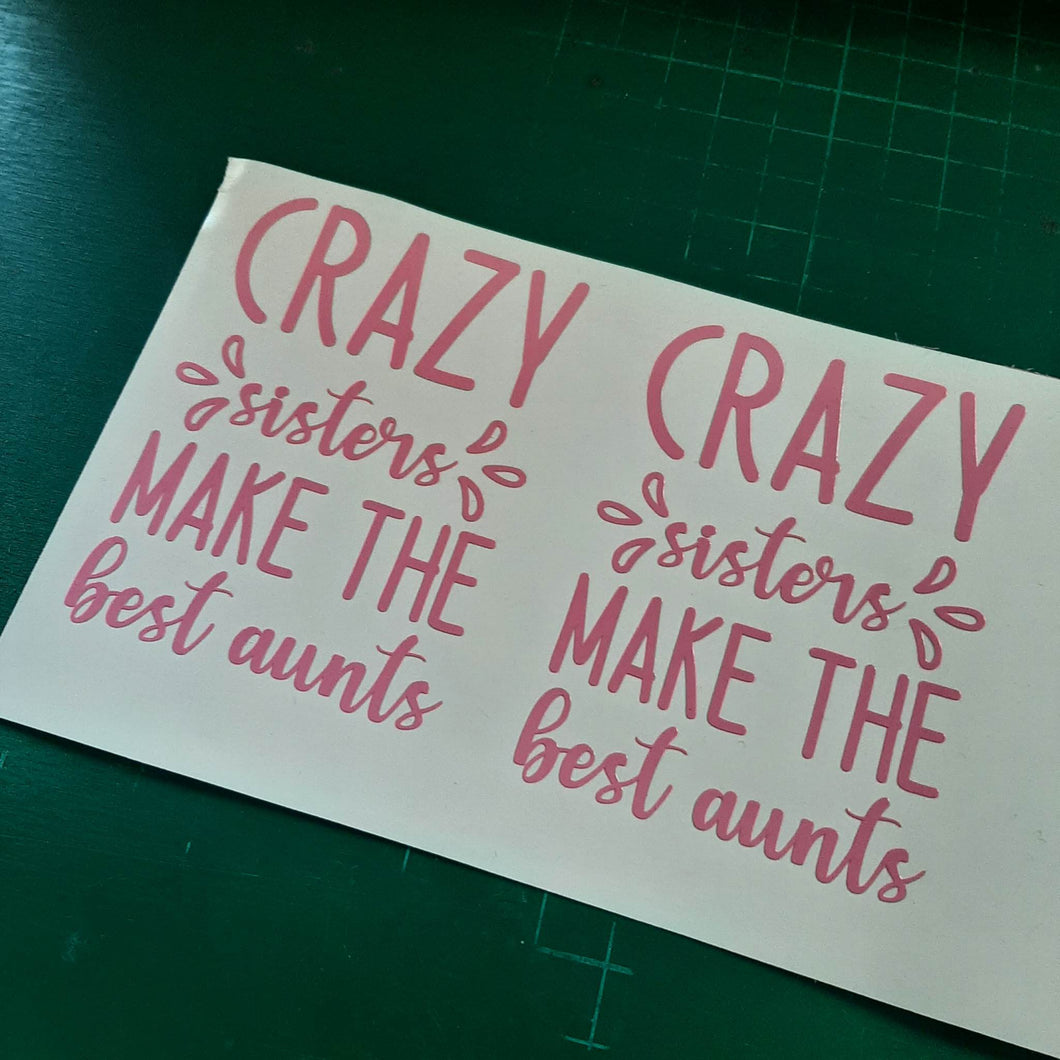 CRAZY
sisters
MAKE THE
best aunts
CRAZY
sisters
MAKE THE
best aunts